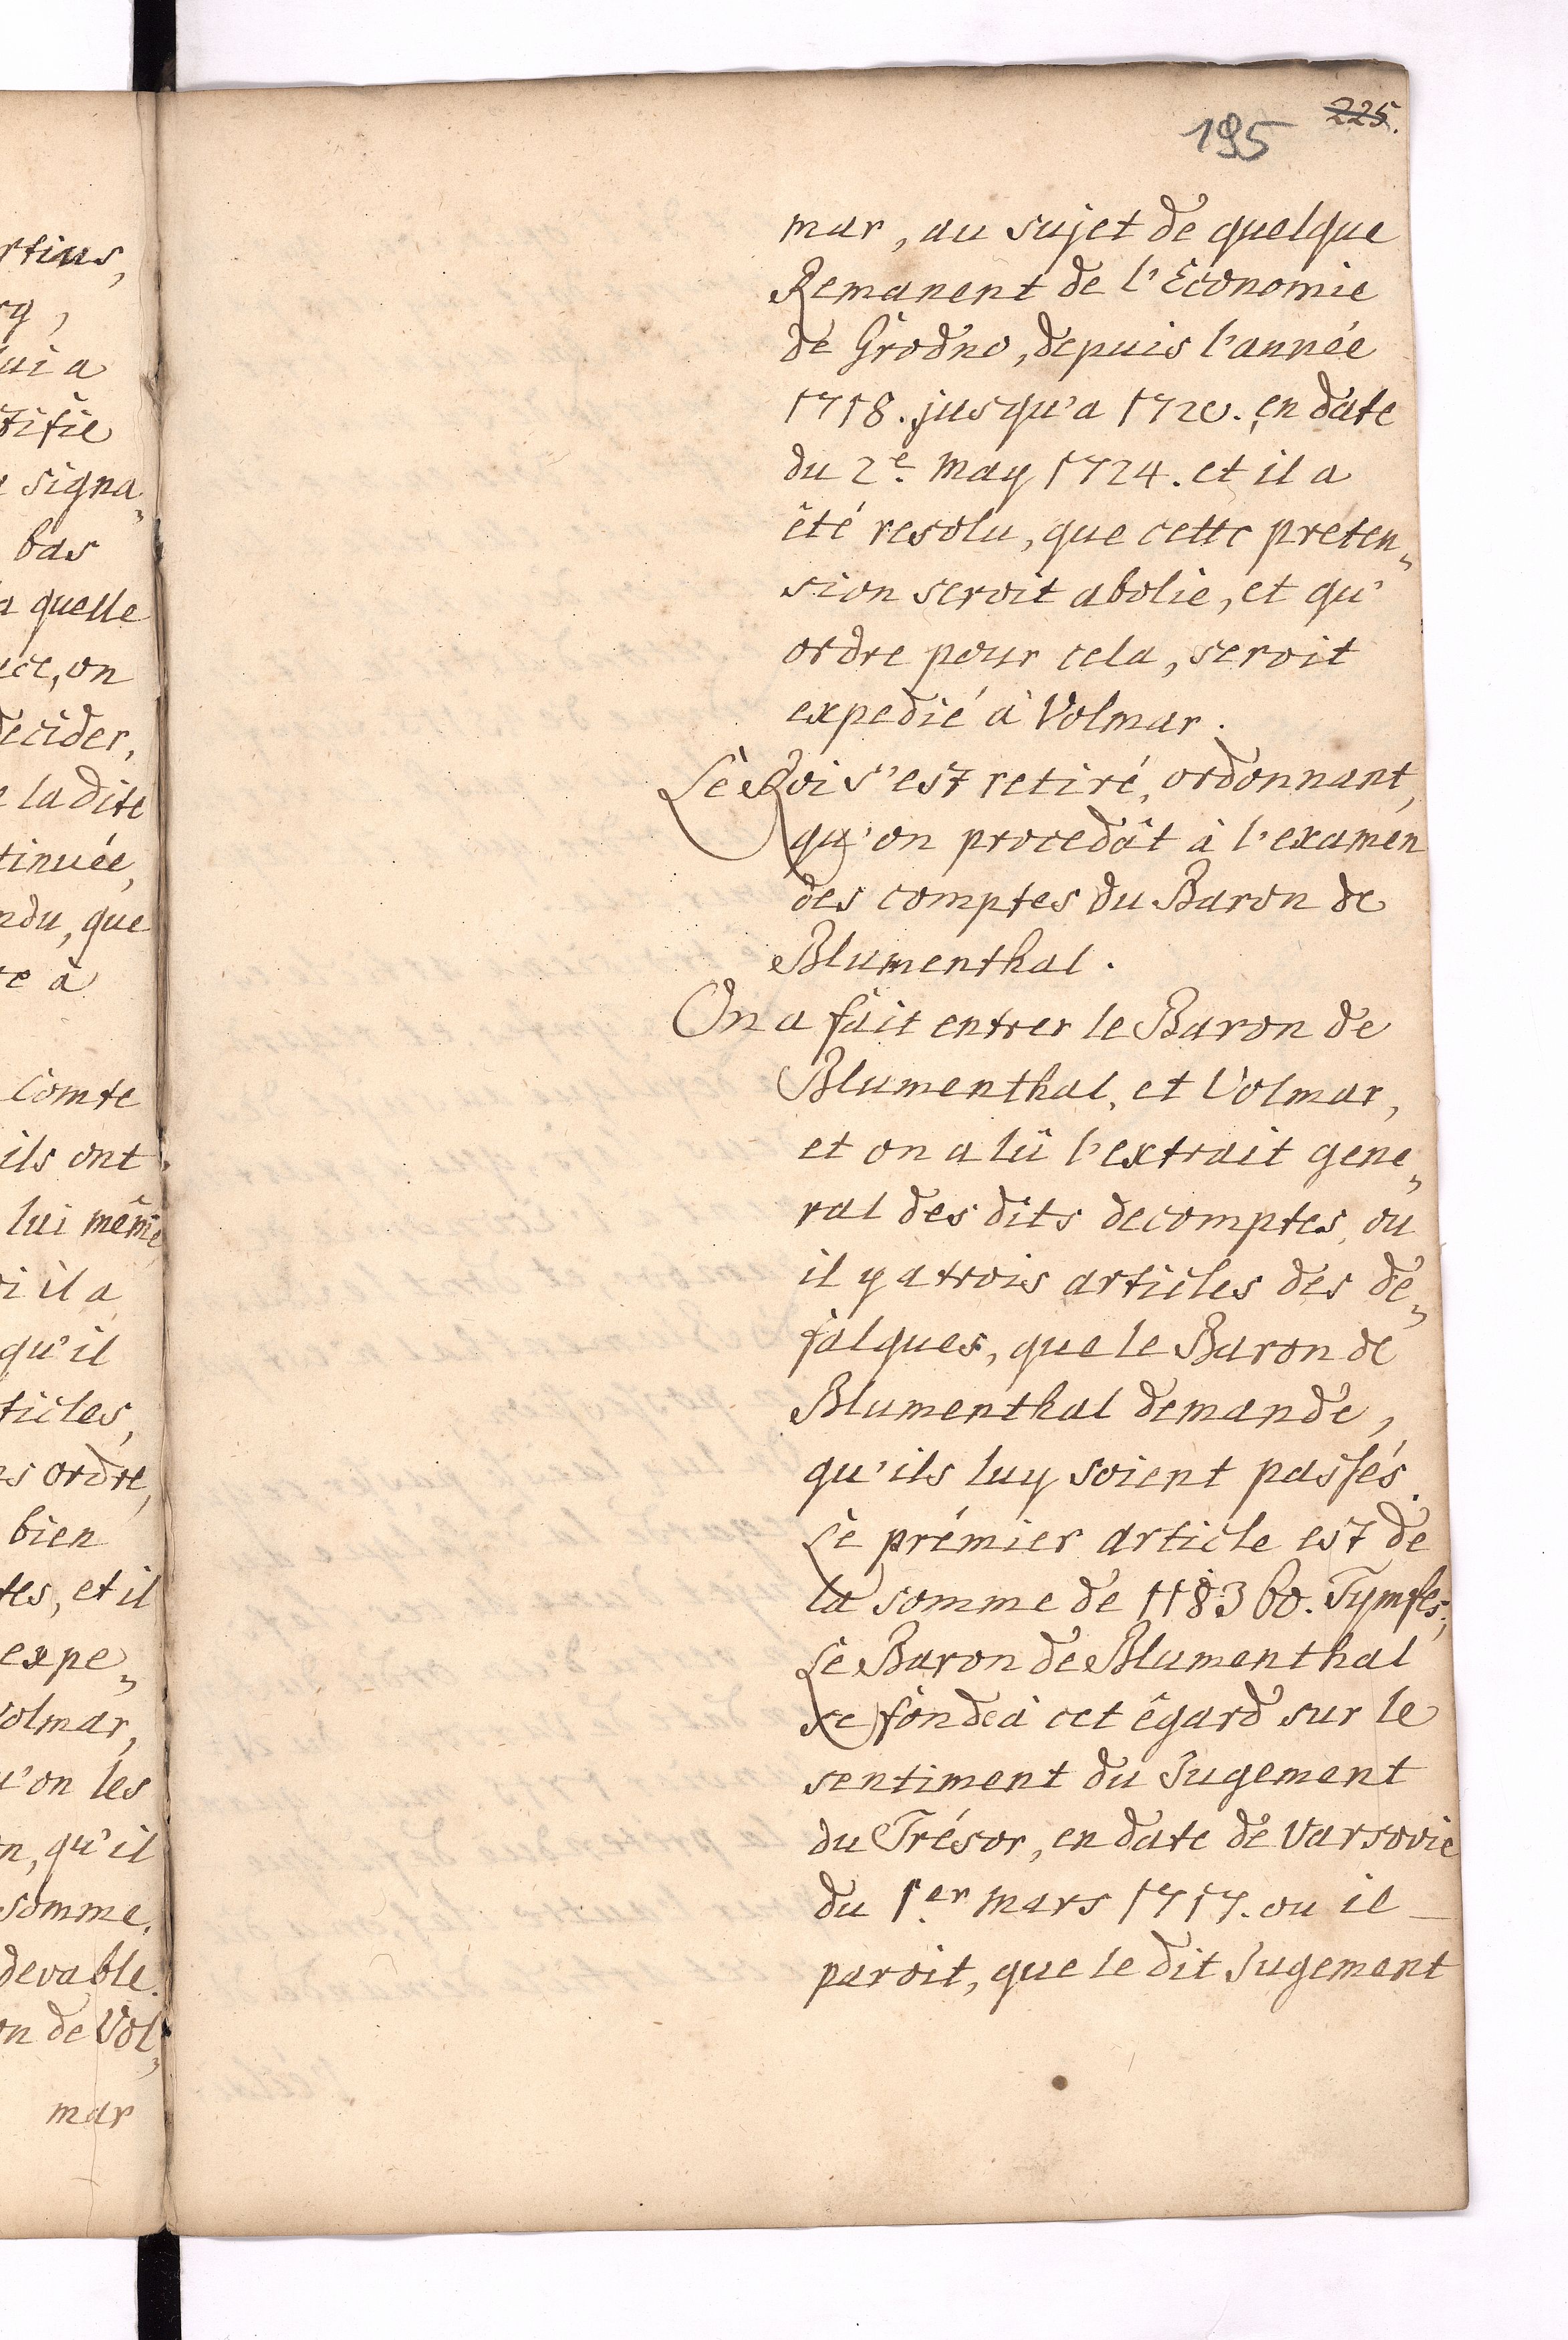 195 225.
mar, au sujet de quelque
Remanent de l'Economie
de Grodno, depuis l'année
1718. jusqu'a 1720. en date
du 2e. May 1724. et il a
êté resolu, que cette preten„
sion seroit abolie, et qu'
ordre pour cela, seroit
expedié à Volmar.
Le Roi s'est retiré, ordonnant,
qu'on procedât à l'examen
des comptes du Baron de
Blumenthal.
On a fait entrer le Baron de
Blumenthal, et Volmar,
et on a lû l'extrait gene„
ral des dits decomptes, ou
il y a trois articles des dé„
falques, que le Baron de
Blumenthal demande,
qu'ils luy soient passés.
Le prémier article est de
la somme de 118360. Tymfes;
Le Baron de Blumenthal
se fonde à cet êgard sur le
sentiment du Jugement
du Trésor, en date de Varsovie
du 1.er Mars 1717. ou il
paroit, que le dit Jugement
rtius,
rg,
lui a
tifie
e signa„
bas
a quelle
ece, on
decider,
e la dite
tinuée,
ndu, que
te à
Comte
ils ont
lui même
oi il a
qu'il
ticles,
ns ordre,
bien
tes, et il
expe„
Volmar,
u'on les
n, qu'il
somme.
devable.
on de Vol„
mar